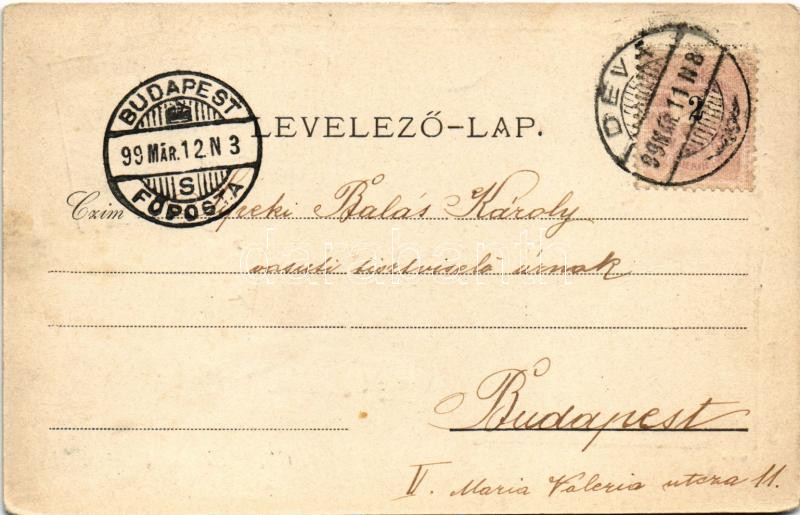 LEVELEZŐ-LAP.
BUDAPEST
99 MÁR. 12. N 3
S
FŐPOSTA
DÉVA
99 MÁR 11 N 8
2
Czim
Balás Károly
vasuti tisztviselő úrnak
Budapest
Maria Valeria utcza 11.
darabanth